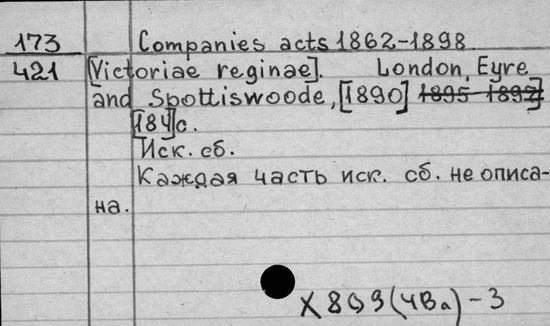 173 Companies acts 1862-1898
421 [Victoriae reginae]. London, Eyre
and Spottiswoode, [1890] 1895 1892]
[184]с.
Иск. сб.
Каждая часть иск. сб. не описа-
на.
X 899(4Ва)-3